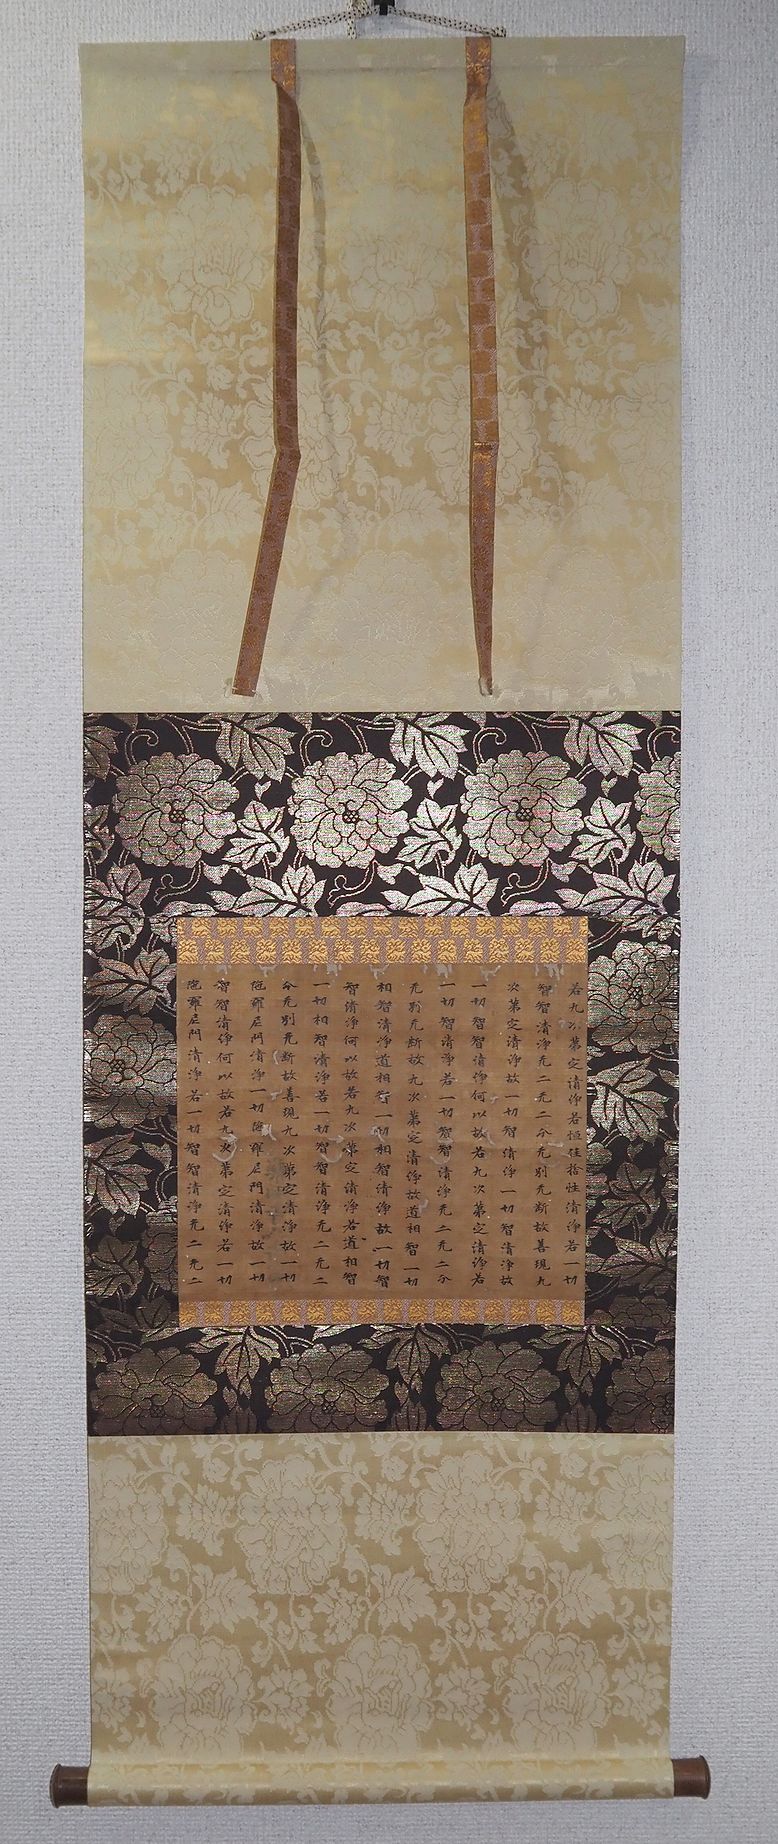 若九次第定清淨若恒住捨性清淨若一切
智智清淨无二无二分无別无斷故善現九
次第定清淨故一切智清淨一切智清淨故
一切智智清淨何以故若九次第定清淨若
一切智清淨若一切智智清淨无二无二分
无別无斷故九次第定清淨故道相智一切
相智清淨道相智一切相智清淨故一切智
智清淨何以故若九次第定清淨若道相智
一切相智清淨若一切智智清淨无二无二
分无別无斷故善現九次第定清淨故一切
陀羅尼門清淨一切陀羅尼門清淨故一切
智智清淨何以故若九次第定清淨若一切
陀羅尼門清淨若一切智智清淨无二无二